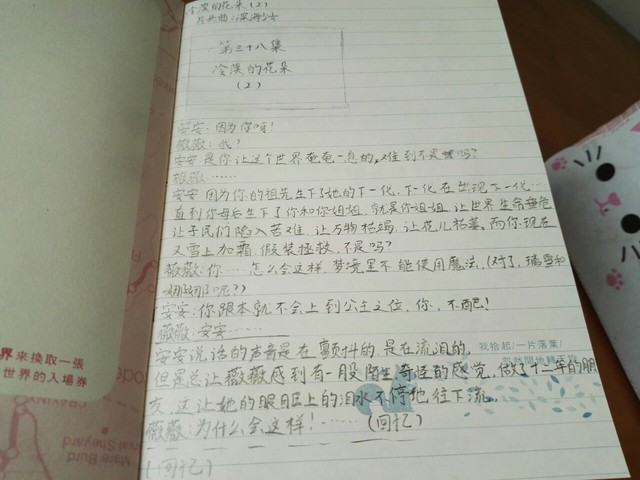 冷漠的花朵(2)
片头曲:深海少女
第三十八集
冷漠的花朵
(2)
安安:因为你呀!
薇薇:我?
安安:是你让这个世界奄奄一息的,难到不是吗?
薇薇……
安安:因为你的祖先生下了她的下一代,下一代在出现下一代…
直到你母后生下了你和你姐姐,就是你姐姐,让世界生命垂危
让子民们陷入苦难,让万物枯竭,让花儿枯萎。而你现在
又雪上加霜,假装拯救,不是吗?
薇薇:你……怎么会这样,梦境里不能使用魔法,(对了,瑞雪和
娜娜呢?)
安安:你跟本就不会上到公主之位,你,不配!
薇薇:安安……
安安说话的声音是在颤抖的,是在流泪的,
但是总让薇薇感到有一股陌生奇怪的感觉,做了十二年的朋
友,这让她的眼眶上的泪水不停地往下流。
薇薇:为什么会这样!……(回忆)
(回忆)
界來換取一張
世界的入場券
我拾起/一片落葉/
Mare Burd